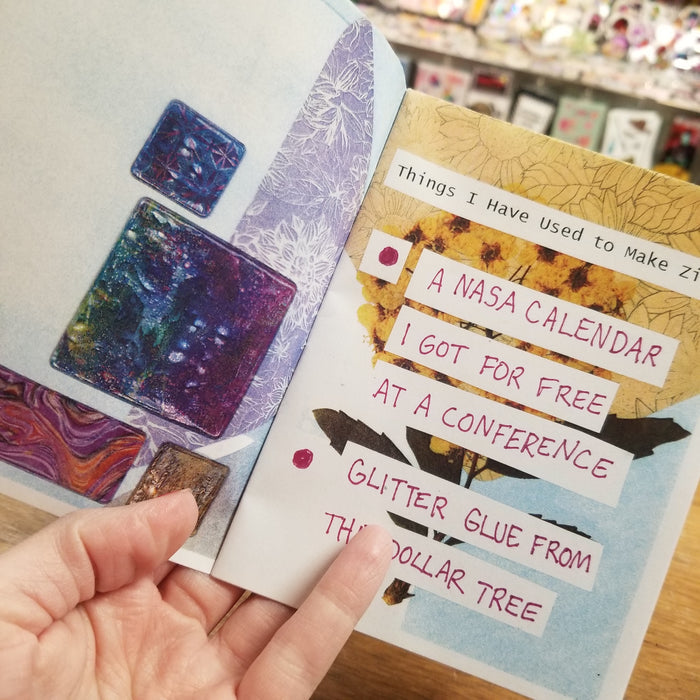 Things I Have Used to Make
A NASA CALENDAR
I GOT FOR FREE
AT A CONFERENCE
GLITTER GLUE FROM
DOLLAR TREE